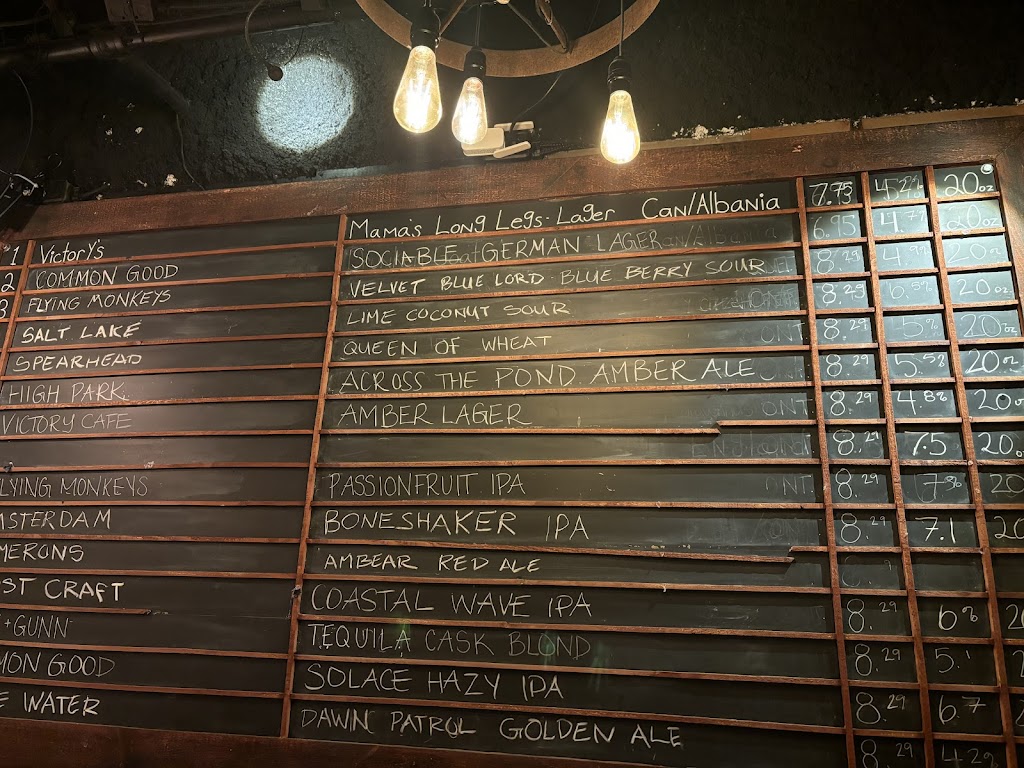 #1 Victory's Mama's Long Legs - Lager Can/Albania 7.75 4.2% 20oz
2 COMMON GOOD SOCIABLE GERMAN LAGER 6.95 4.7% 20oz
3 FLYING MONKEYS VELVET BLUE LORD BLUE BERRY SOUR 8.29 20
SALT LAKE LIME COCONUT SOUR 8.29 20oz
SPEARHEAD QUEEN OF WHEAT ONT. 8.29 5% 20oz
HIGH PARK ACROSS THE POND AMBER ALE 8.29 5.5% 20oz
VICTORY CAFE AMBER LAGER ONT. 8.29 4.8% 20
England 8.29 7.5 20
LYING MONKEYS PASSIONFRUIT IPA ONT. 8.29 7% 20
MSTERDAM BONESHAKER IPA 8.29 7.1 20
MERONS AMBEAR RED ALE
ST CRAFT COASTAL WAVE IPA 8.29 6% 20
+GUNN TEQUILA CASK BLOND 8.29 5.1
MON GOOD SOLACE HAZY IPA 8.29 6.7
E WATER DAWN PATROL GOLDEN ALE 8.29 4.2%